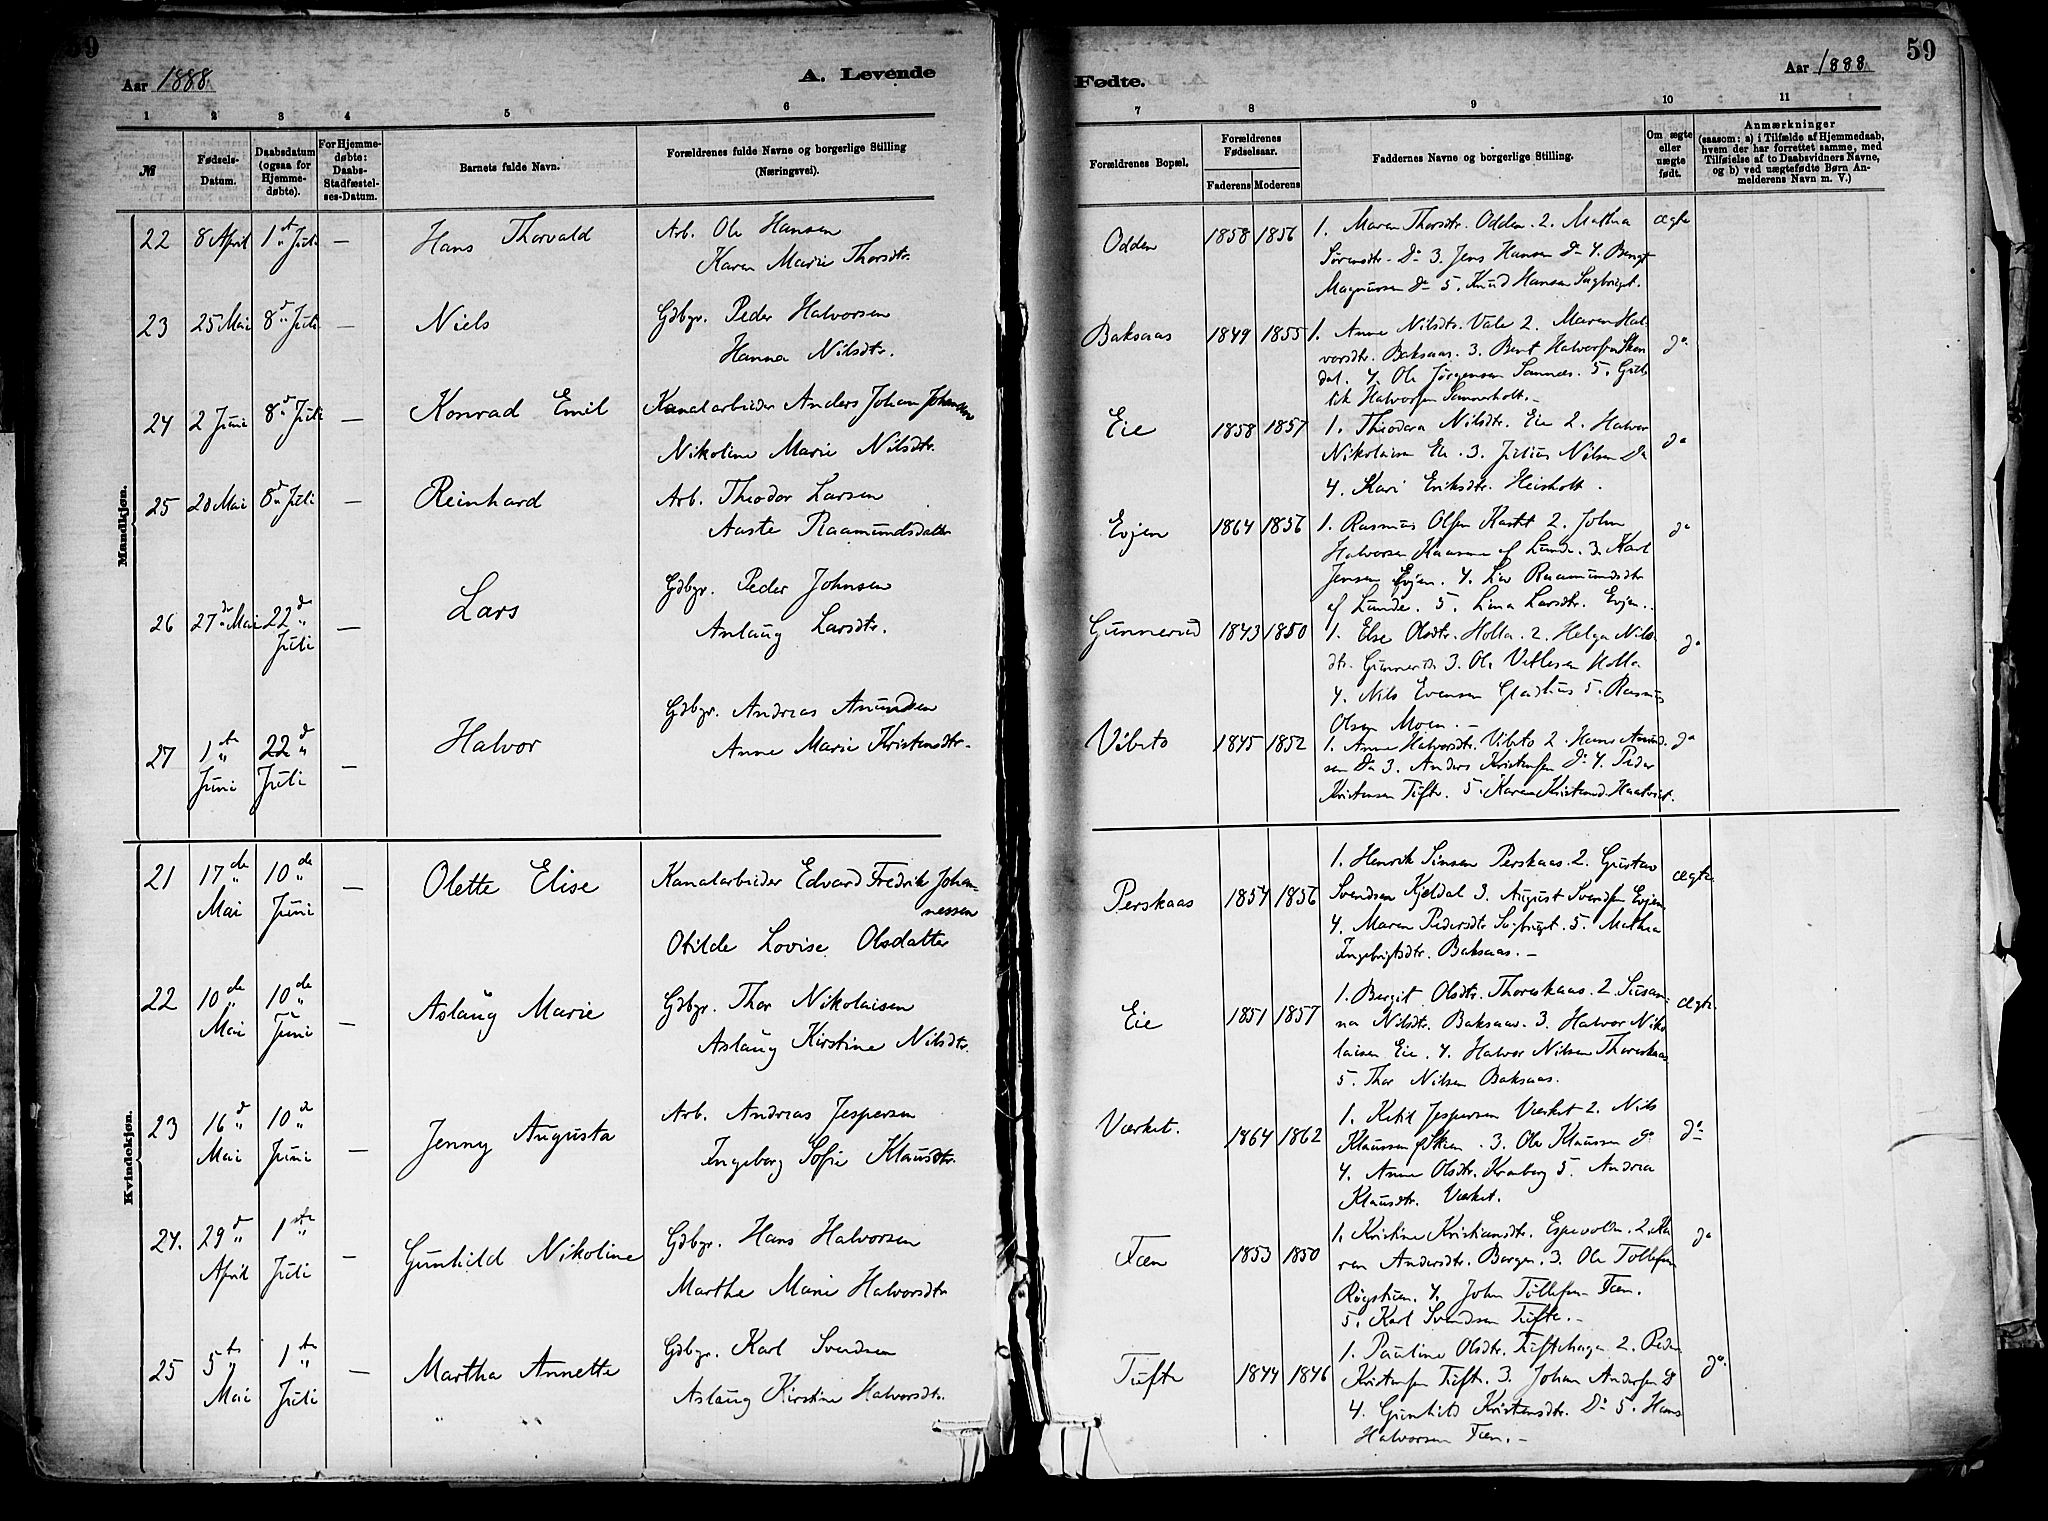 59
Aar 1888
A. Levende
Fødte.
Aar 1888
59
1 2 3 4 5 6 7 8 9 10 11
№
Fødsels-
Datum.
Daabsdatum
(ogsaa for
Hjemme-
døbte).
For Hjemme-
døbte:
Daabs-
Stadfæstel-
ses-Datum.
Barnets fulde Navn.
Forældrenes fulde Navne og borgerlige Stilling
(Næringsvei).
Forældrenes Bopæl.
Forældrenes
Fødselsaar.
Faderens Moderens
Faddernes Navne og borgerlige Stilling.
Om ægte
eller
uægte
født.
Anmærkninger
(saasom: a) i Tilfælde af Hjemmedaab,
hvem der har forrettet samme, med
Tilføielse af to Daabsvidners Navne,
og b) ved uægtefødte Børn An-
melderens Navn m. V.)
Mandkjøn.
22 8 April 1st Juli — Hans Thorvald
Arb. Ole Hansen
Karen Marie Thorsdtr.
Odden 1858 1856
1. Maren Thorsdtr. Odden. 2. Mathea
Sørensdtr. Do 3. Jens Hansen Do 4. Bengt
Magnussen Do 5. Knud Hansen Sagbriget.
ægte
23 25 Mai 8d Juli — Niels
Gdbgr. Peder Halvorsen
Hanna Nilsdtr.
Baksaas 1849 1855
1. Anne Nilsdtr. Vale 2. Maren Hal-
vorsdtr. Baksaas. 3. Bent Halvorsen Sken
dal. 4. Ole Jørgensen Sannæs. 5. Gull
rik Halvorsen Sannerholt. —
do
24 2 Juni 8d Juli — Konrad Emil
Kanalarbeider Anders Johan Johansen
Nikoline Marie Nilsdtr.
Eie 1858 1857
1. Theodora Nilsdtr. Eie 2. Halvor
Nikolaisen Eie. 3. Julius Nilsen Do
4. Kari Eriksdtr. Heisholt.
do
25 20 Mai 8d Juli — Reinhard
Arb. Theodor Larsen
Aaste Raamundsdatter
Evjen 1864 1856
1. Rasmus Olsen Kastet 2. John
Halvorsen Kaasene af Lunde. 3. Karl
Jensen Evjen. 4. Liv Raamundsdtr
af Lunde. 5. Lina Larsdtr. Evjen.
do
26 27de Mai 22d Juli — Lars
Gdbgr. Peder Johnsen
Anlaug Larsdtr.
Gunnerud 1843 1850
1. Else Olsdtr. Holla. 2. Helga Nils-
dtr. Gunnerud 3. Ole Vetlesen Holla
4. Nils Evensen 5. Rasmus
Olsen Moen. —
do
27 1te Juni 22d Juli — Halvor
Gdbgr. Andreas Amundsen
Anne Marie Kristensdtr.
Vibeto 1845 1852
1. Anne Halvorsdtr. Vibeto 2. Hans Amund-
sen Do 3. Anders Kristensen Do 4. Peder
Kristensen Tufte. 5. Karen Kristensd. Haatveit.
do
Kvindekjøn.
21 17de Mai 10de Juni — Olette Elise
Kanalarbeider Edvard Fredrik Johan-
nessen
Otilde Lovise Olsdatter
Perskaas 1854 1856
1. Henrik Simsen Perskaas. 2. Gustav
Svendsen Kjeldal 3. August Svendsen Evjen
4. Maren Pedersdtr. Sagbriget. 5. Mathea
Ingebrigtsdtr. Baksaas. —
ægte
22 10de Mai 10de Juni — Aslaug Marie
Gdbgr. Thor Nikolaisen
Aslaug Kirstine Nilsdtr.
Eie 1851 1857
1. Bergit Olsdtr. Thoreskaas. 2. Susan-
na Nilsdtr. Baksaas. 3. Halvor Niko
laisen Eie. 4. Halvor Nilsen Thoreskaas
5. Thor Nilsen Baksaas.
ægte.
23 16d Mai 10de Juni — Jenny Augusta
Arb. Andreas Jespersen
Ingeborg Sofie Klausdtr.
Værket. 1864 1862
1. Ketil Jespersen Værket 2. Nils
Klaussen af Skien. 3. Ole Klaussen do
4. Anne Olsdtr. Kraaberg 5. Andrea
Klausdtr. Værket.
do
24. 29d April 1ste Juli — Gunhild Nikoline
Gdbgr. Hans Halvorsen
Marthe Marie Halvorsdtr
Fæn 1853 1850
1. Kirstine Kristiansdtr. Espevolden. 2. Ka
ren Andersdtr. Bergen. 3. Ole Tollefsen
Røgstuen. 4. John Tollefsen Fæn.
5. Karl Svendsen Tufte. —
do
25 5te Mai 1te Juli — Martha Annette
Gdbgr. Karl Svendsen
Aslaug Kirstine Halvorsdtr.
Tufte 1844 1846
1. Pauline Olsdtr. Tuftehagen 2. Peder
Kristensen Tufte. 3. Johan Andersen do
4. Gunhild Kristensdtr. Do 5. Hans
Halvorsen Fæn. —
do.